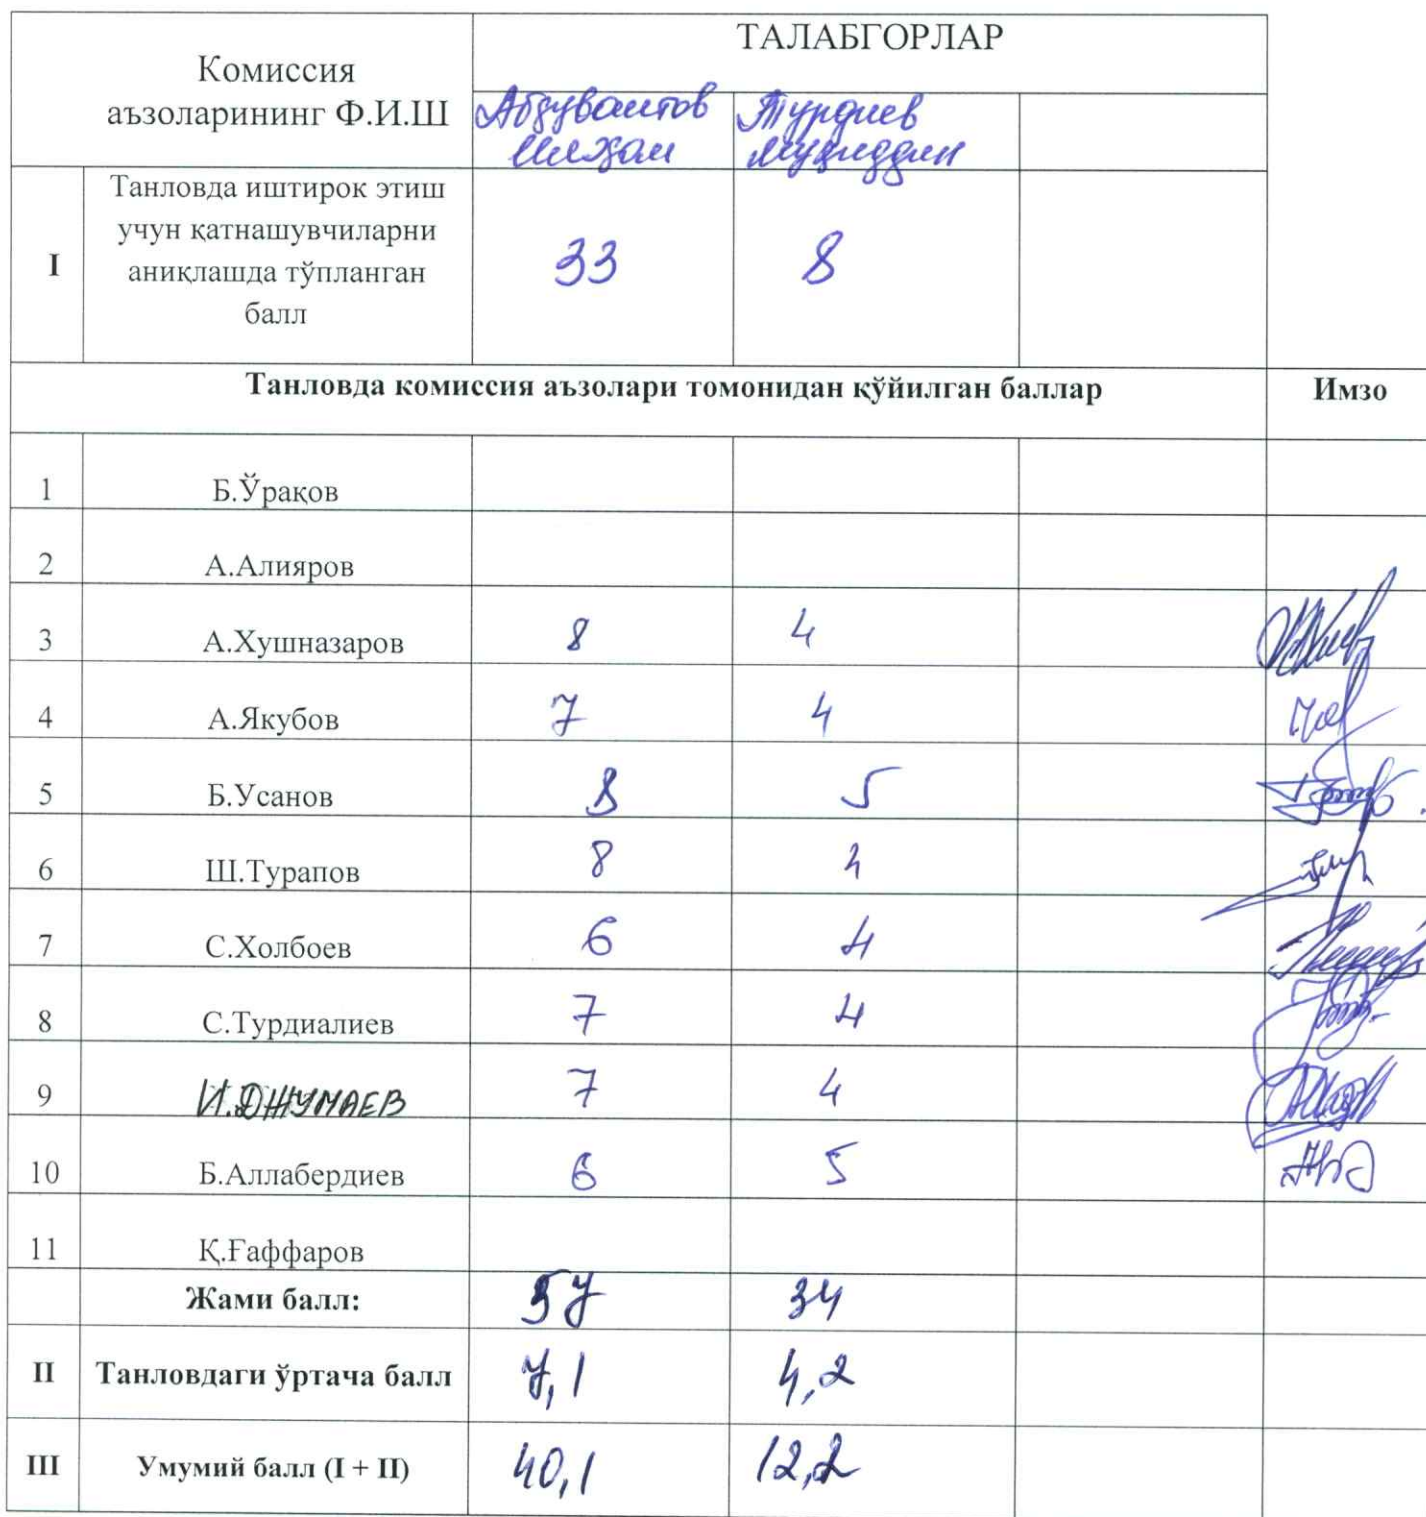 Комиссия
аъзоларининг Ф.И.Ш
ТАЛАБГОРЛАР
Абдуваитов
Илҳом
Турдиев
Муҳиддин
I
Танловда иштирок этиш
учун қатнашувчиларни
аниқлашда тўпланган
балл
33 8
Танловда комиссия аъзолари томонидан қўйилган баллар Имзо
1 Б.Ўрақов
2 А.Алияров
3 А.Хушназаров 8 4
4 А.Якубов 7 4
5 Б.Усанов 8 5
6 Ш.Турапов 8 4
7 С.Холбоев 6 4
8 С.Турдиалиев 7 4
9 И.ДЖУМАЕВ 7 4
10 Б.Аллабердиев 6 5
11 Қ.Ғаффаров
Жами балл: 57 34
II Танловдаги ўртача балл 7,1 4,2
III Умумий балл (I + II) 40,1 12,2